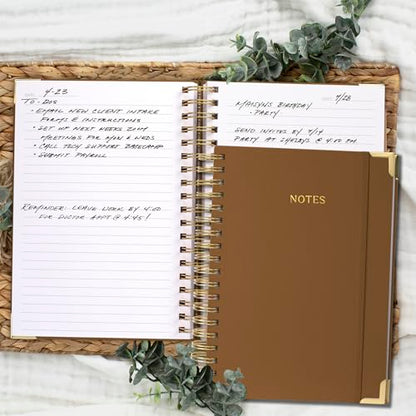 4-23
To-Dos
• Email new client intake
forms & instructions
• Set up next weeks Zoom
meetings for Mon & Weds
• Call tech support Basecamp
• Submit payroll
Reminder: Leave work by 4:00
for doctor appt @ 4:45!
7/23
Maisyn's Birthday
• Party
Send invites by 7/14
Party at Shelby's @ 4:00 pm
NOTES